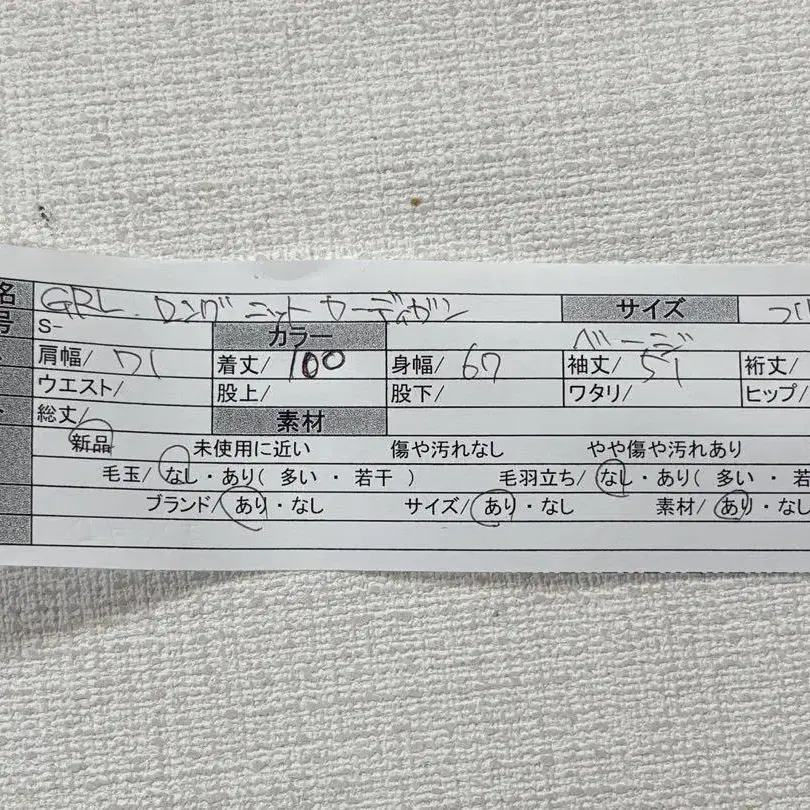 名 GRL ロングニットカーディガン サイズ フリ
号 S- カラー ベージ
肩幅/ 71 着丈/ 100 身幅/ 67 袖丈/ 51 裄丈/
ウエスト/ 股上/ 股下/ ワタリ/ ヒップ/
総丈/ 素材
新品 未使用に近い 傷や汚れなし やや傷や汚れあり
毛玉/ なし・あり( 多い ・ 若干 ) 毛羽立ち/ なし・あり( 多い ・ 若
ブランド/ あり・なし サイズ/ あり・なし 素材/ あり・なし